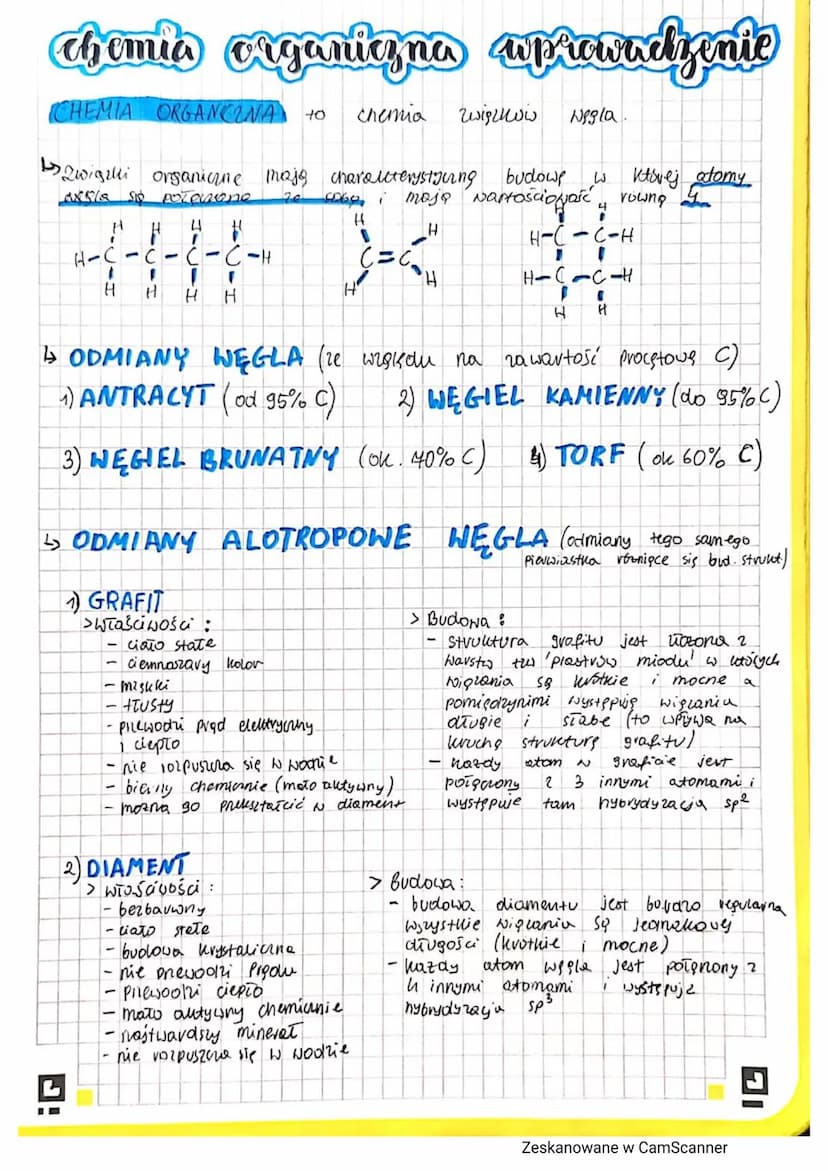 chemia organiczna wprowadzenie
CHEMIA ORGANCZNA to chemia związków węgla.
↳ Związki organiczne mają charakterystyczną budowę w której atomy
węgla są połączone ze sobą, i mają wartościowość równą 4
H H H H H H H H
H-C-C-C-C-H C=C H-C-C-H
H H H H H H H-C-C-H
H H
↳ ODMIANY WĘGLA (ze względu na zawartość procętową C)
1) ANTRACYT (od 95% C) 2) WĘGIEL KAMIENNY (do 95% C)
3) WĘGIEL BRUNATNY (ok. 70% C) 4) TORF (ok 60% C)
↳ ODMIANY ALOTROPOWE WĘGLA (odmiany tego samego
pierwiastka różniące się bud. strukt)
1) GRAFIT
> właściwości :
- ciało stałe
- ciemnoszary kolor
- miękki
- tłusty
- przewodzi prąd elektryczny
i ciepło
- nie rozpuszcza się w wodzie
- bierny chemicznie (mało aktywny)
- można go przekształcić w diament
> Budowa :
- struktura grafitu jest złożona z
warstw tzw 'plastrów miodu' w których
wiązania są krótkie i mocne a
pomiędzynimi występują wiązania
długie i słabe (to wpływa na
kruchą strukturę grafitu)
- każdy atom w graficie jest
połączony z 3 innymi atomami i
występuje tam hybrydyzacja sp²
2) DIAMENT
> właściwości :
- bezbarwny
- ciało stałe
- budowa krystaliczna
- nie przewodzi prądu
- przewodzi ciepło
- mało aktywny chemicznie
- najtwardszy minerał
- nie rozpuszcza się w wodzie
> Budowa :
- budowa diamentu jest bardzo regularna
wszystkie wiązania są jednakowej
długości (krótkie i mocne)
- każdy atom węgla jest połączony z
4 innymi atomami i występuje
hybrydyzacja sp³
Zeskanowane w CamScanner